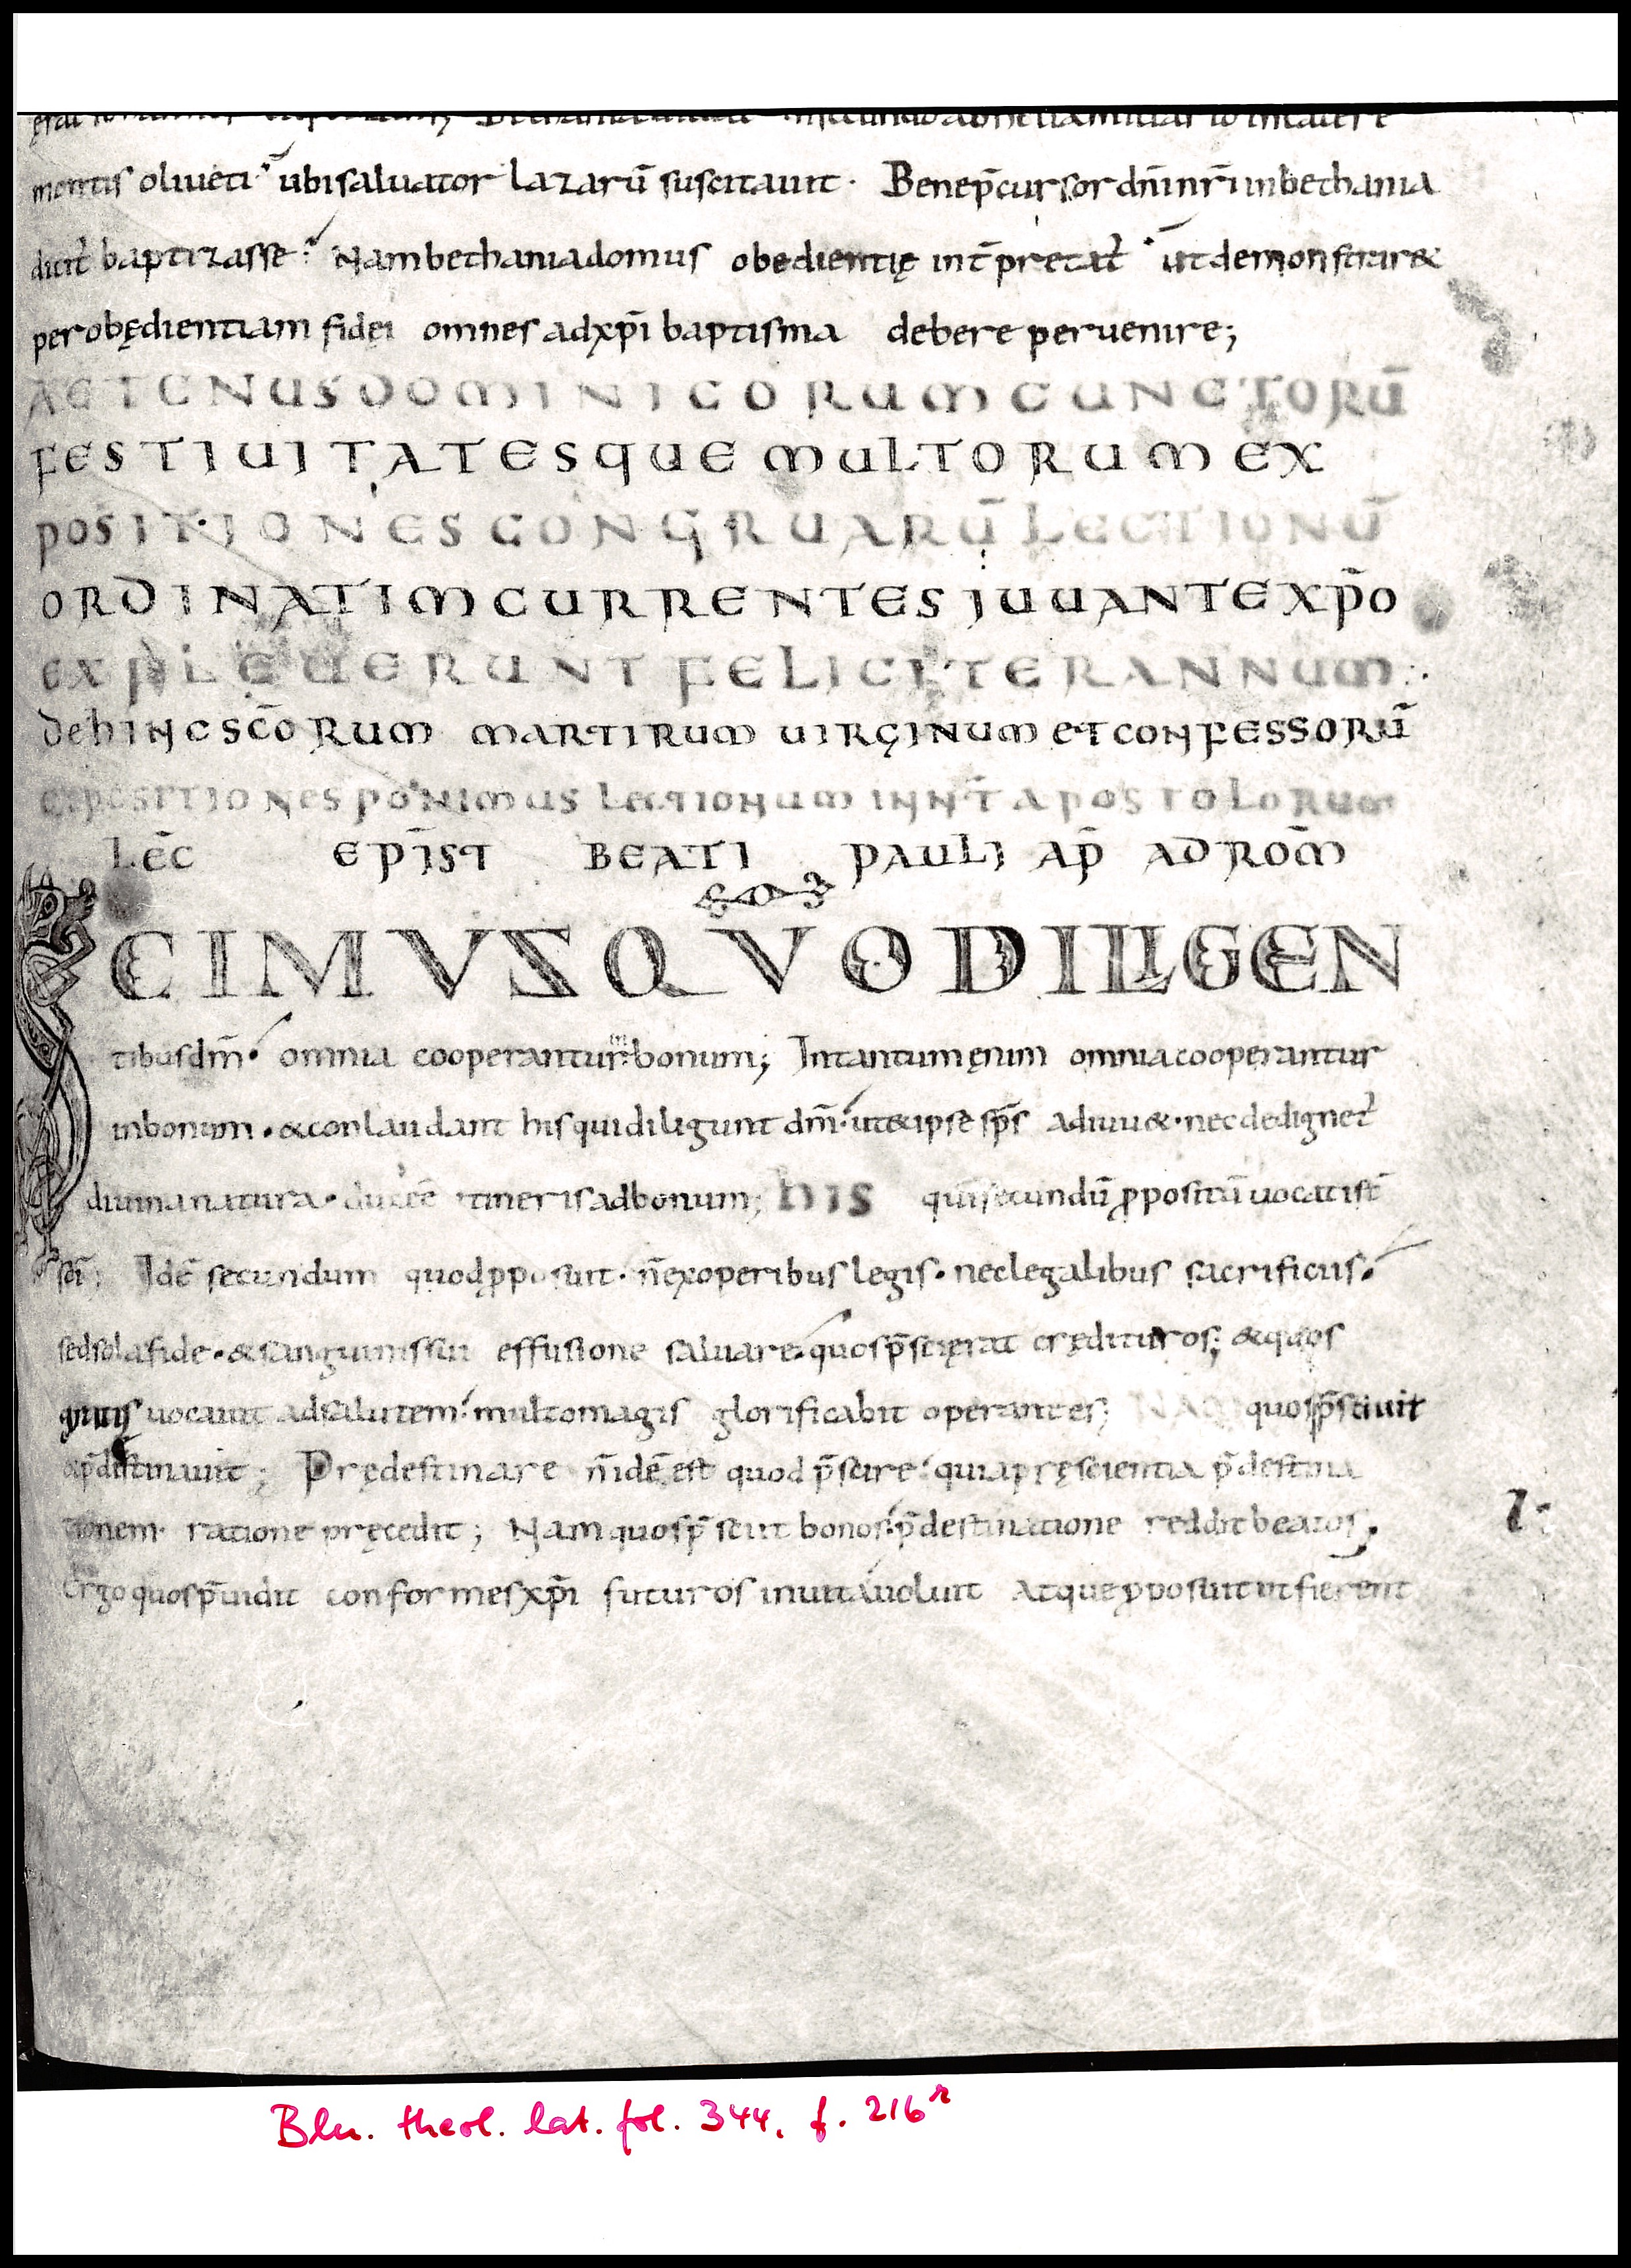 montis oliueti· ubi saluator lazarū suscitauit· Bene p̄cursor dn̄i nr̄i in bethania
dicit᷑ baptizasse· Nam bethania domus obedientię int̄pretat᷑· ut demonstrar&
per obędientiam fidęi omnes ad xp̄i baptisma debere peruenire;
ACTENUS DOMINICORUM CUNCTORŪ
FESTIUITATESQUE MULTORUM EX
POSITIONES CONGRUARŪ LECTIONŪ
ORDINATIM CURRENTES IUUANTE XP̄O
EXPLEUERUNT FELICITER ANNUM:·
dehINC SC̄ORUM MARTIRUM UIRGINUM ET CONFESSORŪ
EXPOSITIONES PONIMUS LECTIONUM IN N̄T APOSTOLORUM
LEC̄ EP̄IST BEATI PAULI AP̄ AD ROM̄
SCIMVS QVO DILIGEN
tibus dm̄· omnia cooperantur in bonum; In tantum ęnim omnia cooperantur
in bonum· & conlaudant his qui diligunt dm̄· ut & ipse sp̄s adiuu&· nec dedignet᷑
diuina natura· ducē itineris ad bonum; hIS qui secundū ꝓpositū uocati st̄
sc̄i; Idē secundum quod ꝓposuit· n̄ ex operibus legis· nec legalibus sacrificiis·
sed sola fide· & sanguinis sui effusione saluare· quos p̄scięrat crędituros; & quos
gratis uocauit ad salutem· multo magis glorificabit operantes; NAM quos p̄sciuit
& p̄destinauit; Prędestinare n̄ idē est quod p̄scire· quia pręscientia p̄destina
tionem ratione pręcedit; Nam quos p̄sciit bonos· p̄destinatione reddit beatos·
Ergo quos p̄uidit conformes xp̄i futuros in uita uoluit Atque ꝓposuit ut fierent
Bln. theol. lat. fol. 344, f. 216ʳ